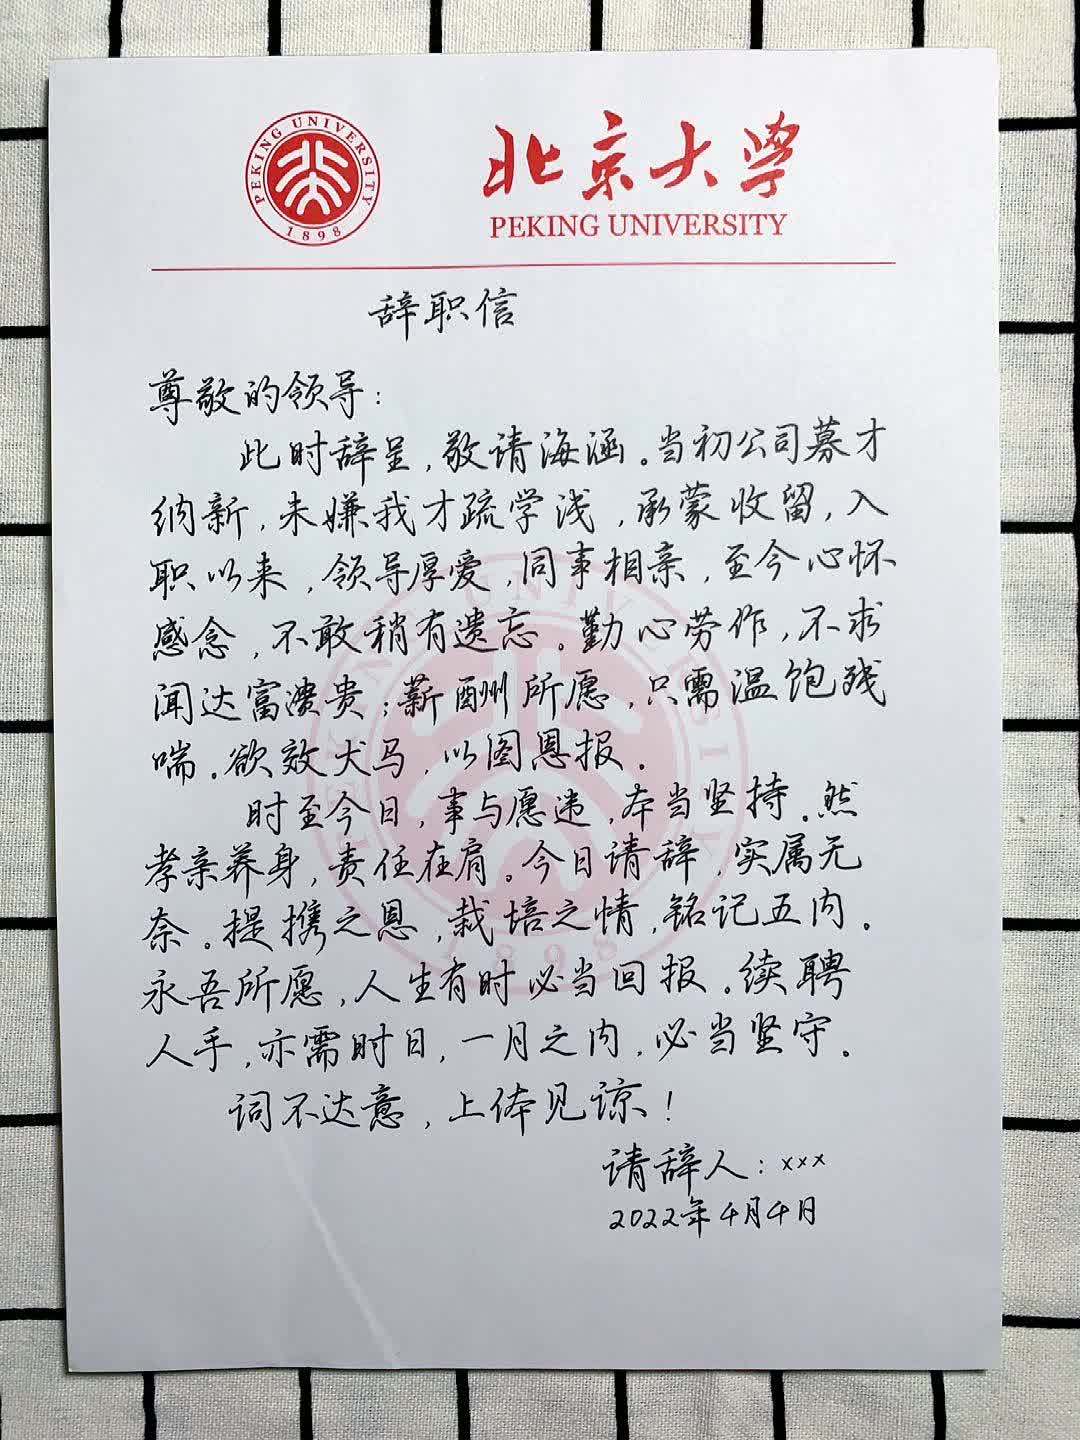 PEKING UNIVERSITY
1898
北京大学
PEKING UNIVERSITY
辞职信
尊敬的领导：
此时辞呈，敬请海涵。当初公司募才
纳新，未嫌我才疏学浅，承蒙收留，入
职以来，领导厚爱，同事相亲，至今心怀
感念，不敢稍有遗忘。勤心劳作，不求
闻达富渍贵；薪酬所愿，只需温饱残
喘。欲效犬马，以图恩报。
时至今日，事与愿违，本当坚持。然
孝亲养身，责任在肩。今日请辞，实属无
奈。提携之恩，栽培之情，铭记五内。
永吾所愿，人生有时必当回报。续聘
人手，亦需时日，一月之内，必当坚守。
词不达意，上体见谅！
请辞人：×××
2022年4月4日
PEKING UNIVERSITY
1898